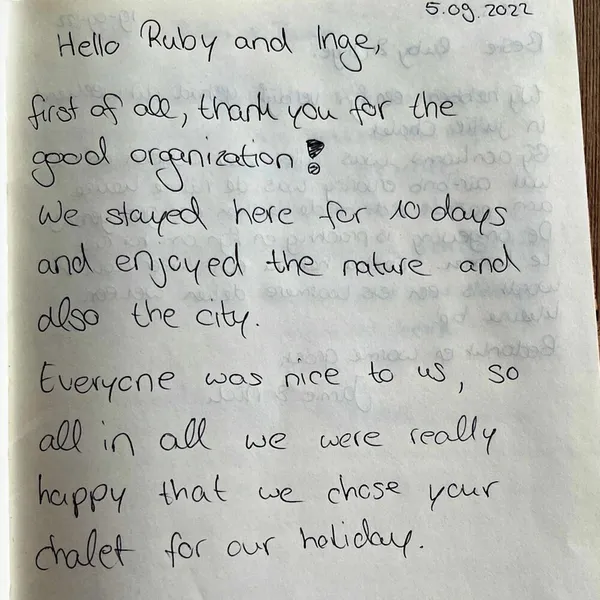 5.09.2022
Hello Ruby and Inge,
first of all, thank you for the
good organization!
We stayed here for 10 days
and enjoyed the nature and
also the city.
Everyone was nice to us, so
all in all we were really
happy that we chose your
chalet for our holiday.